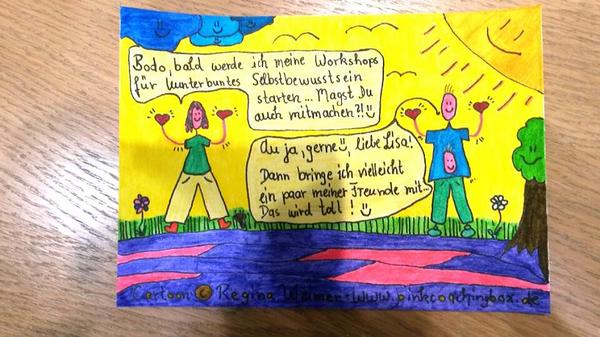 Bodo, bald werde ich meine Workshops
für kunterbuntes Selbstbewusstsein
starten... Magst Du
auch mitmachen?!
Au ja, gerne, liebe Lisa!
Dann bringe ich vielleicht
ein paar meiner Freunde mit...
Das wird toll!
Cartoon © Regina Weimer-www.pinkcoachingbox.de